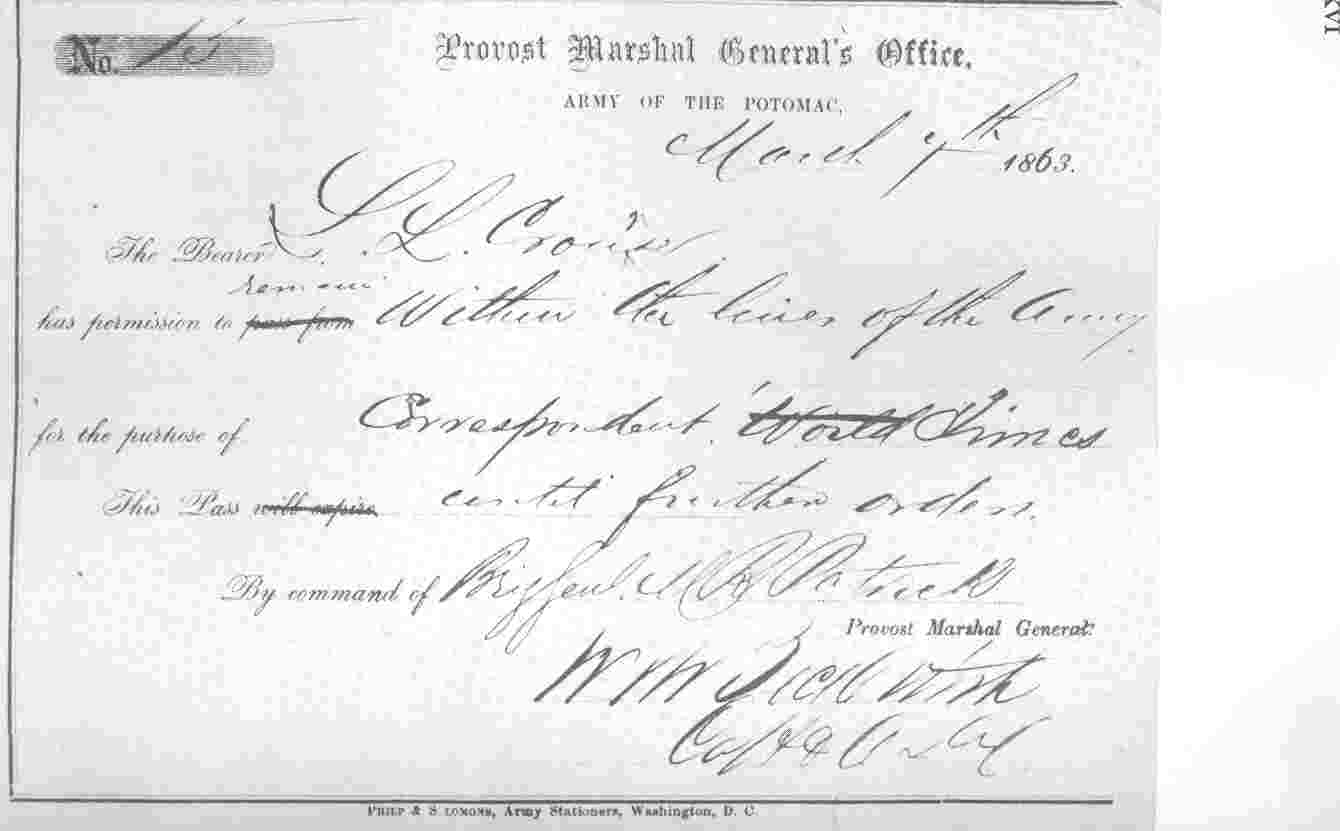 No. 15
Provost Marshal General's Office,
ARMY OF THE POTOMAC,
March 7th 1863.
The Bearer L. L. Crouse
remain
has permission to pass from Within the lines of the Army
for the purpose of Correspondent World Times
This Pass will expire until further orders.
By command of Brig Genl. M R Patrick
Provost Marshal General.
W W Beckwith
Capt & A D C
PHILP & SOLOMONS, Army Stationers, Washington, D. C.